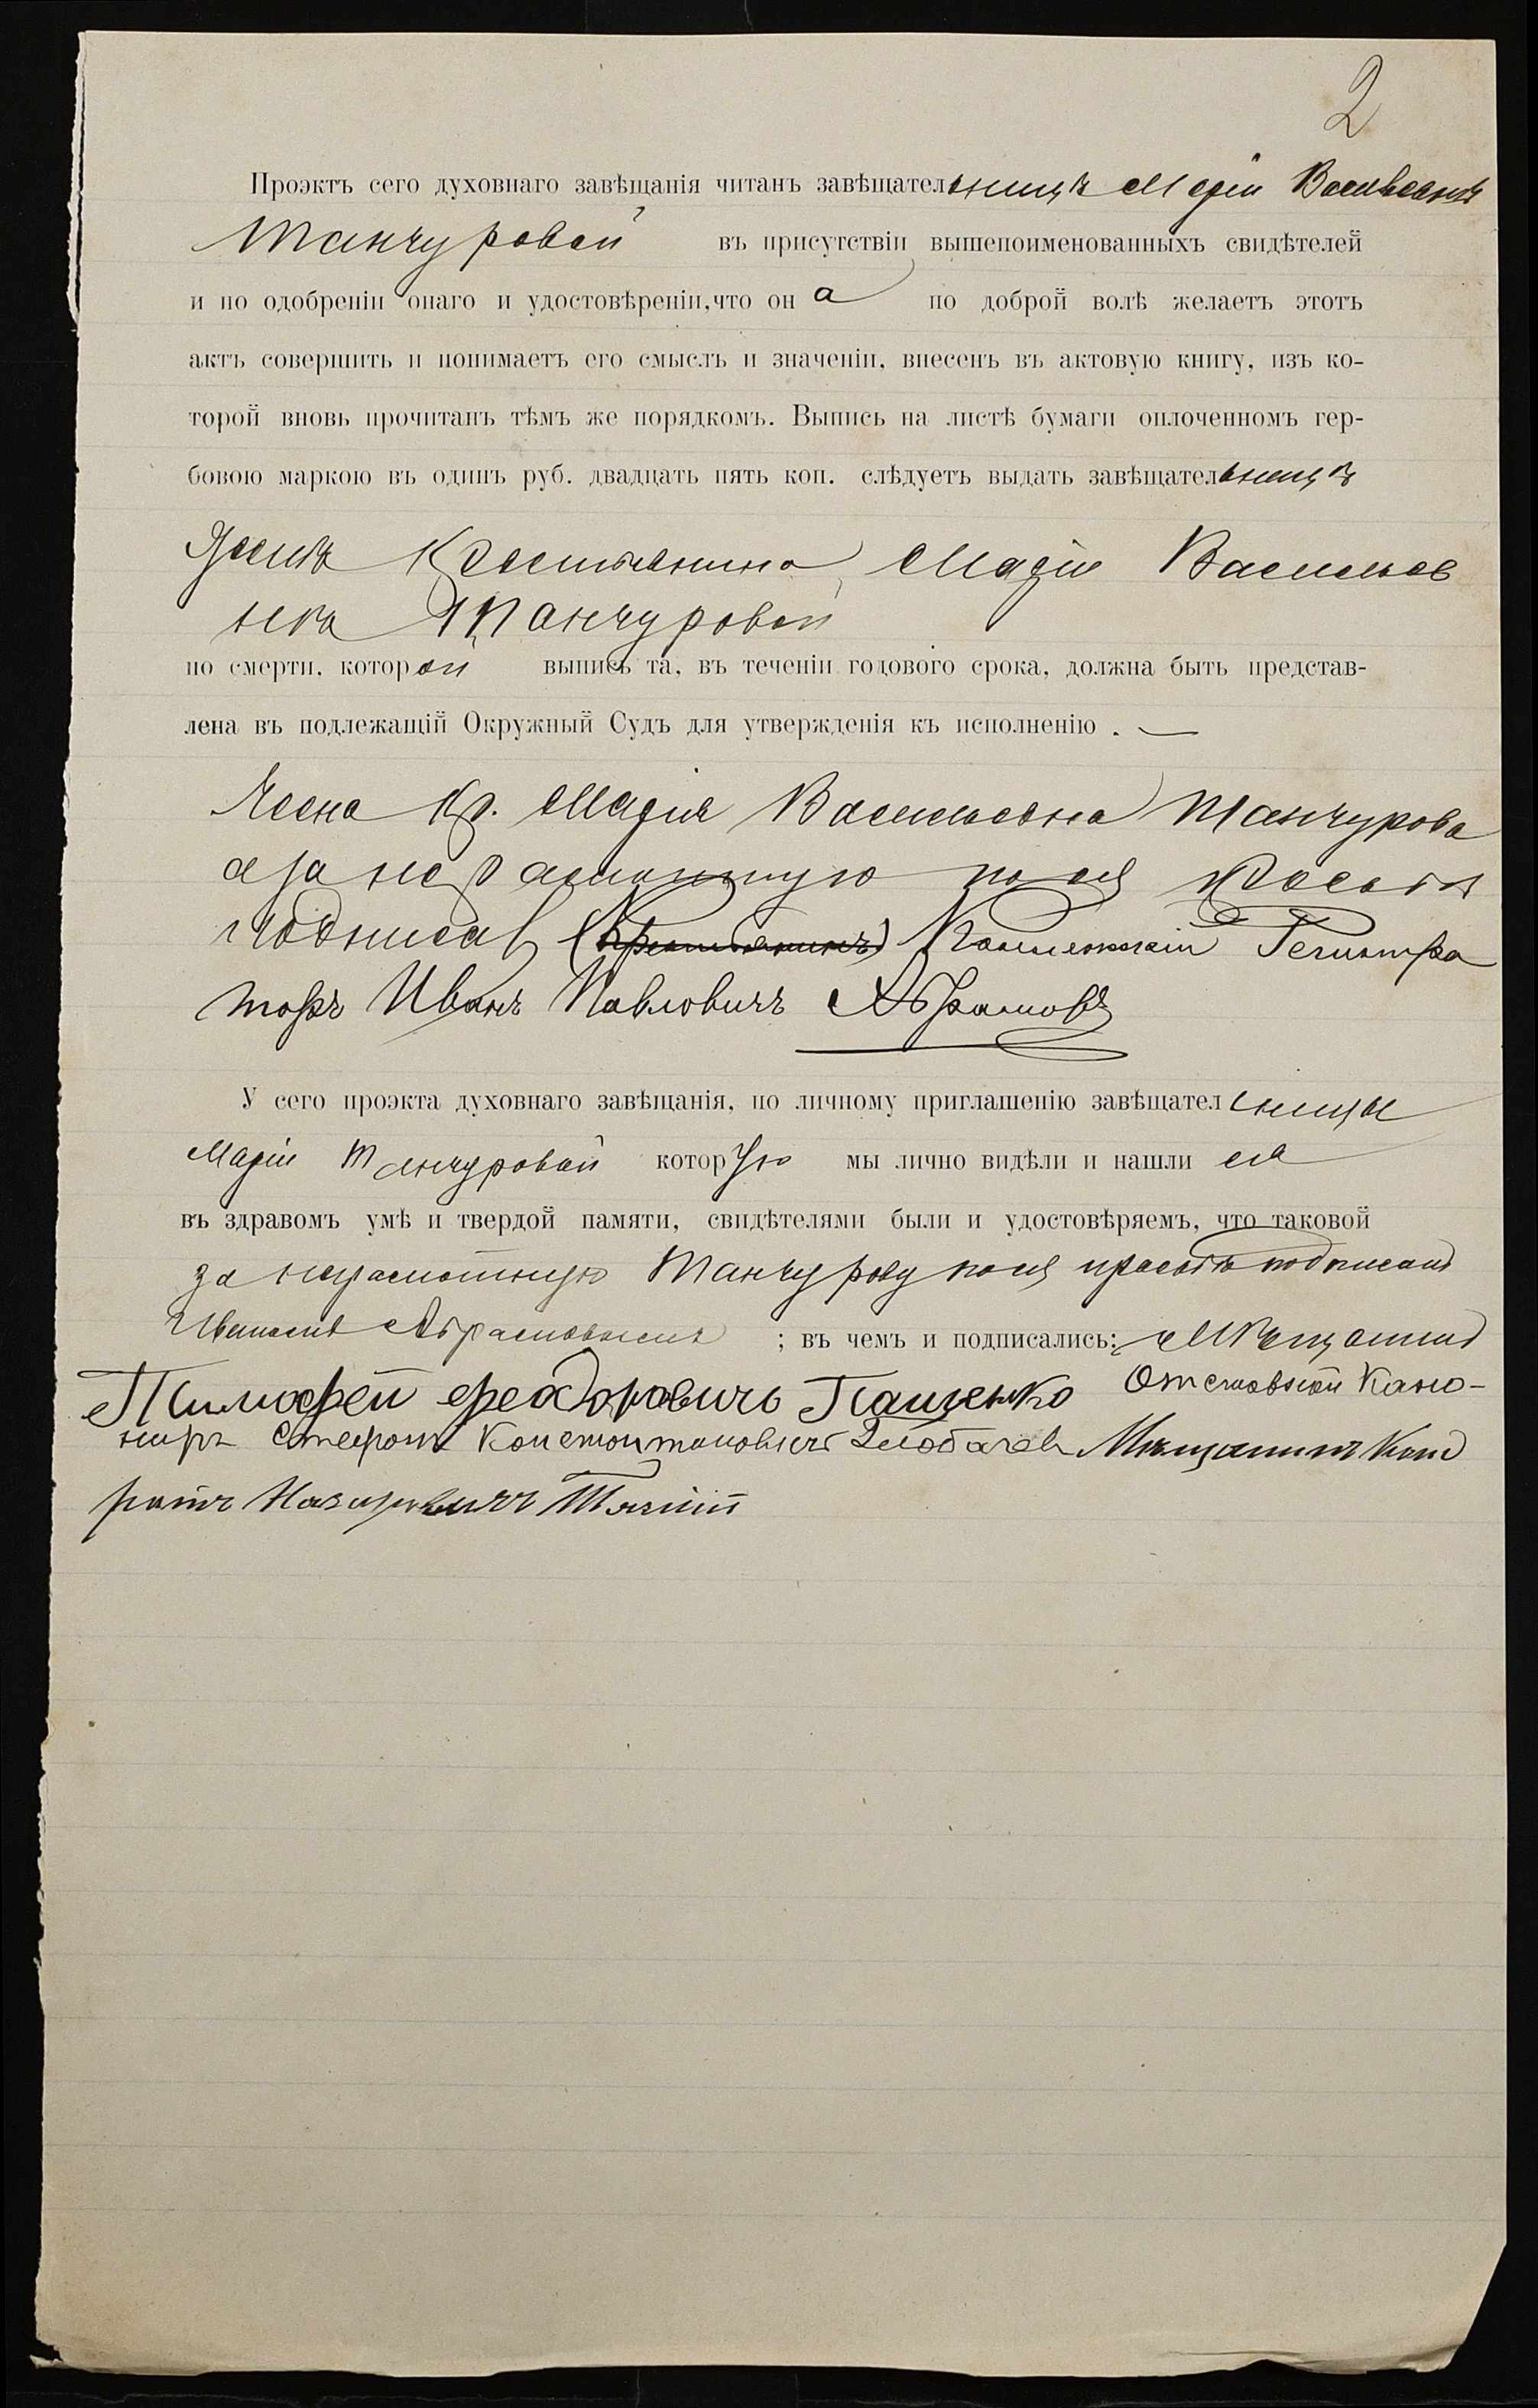 2
Проэктъ сего духовнаго завѣщанія читанъ завѣщательницѣ Маріи Васильевнѣ
Танчуровой въ присутствіи вышепоименованныхъ свидѣтелей
и по одобреніи онаго и удостовѣреніи, что она по доброй волѣ желаетъ этотъ
актъ совершить и понимаетъ его смыслъ и значеніи, внесенъ въ актовую книгу, изъ ко-
торой вновь прочитанъ тѣмъ же порядкомъ. Выпись на листѣ бумаги оплоченномъ гер-
бовою маркою въ одинъ руб. двадцать пять коп. слѣдуетъ выдать завѣщательницѣ
женѣ Крестьянина Маріи Васильев
нѣ Танчуровой
по смерти, которой выпись та, въ теченіи годового срока, должна быть представ-
лена въ подлежащій Окружный Судъ для утвержденія къ исполненію. —
Жена Кр. Марія Васильевна Танчурова
а за неграмотную по ея просьбѣ
подписалъ (Крестьянинъ) Коллежскій Регистра
торъ Иванъ Павловичъ Абрамовъ
У сего проэкта духовнаго завѣщанія, по личному приглашенію завѣщательницы
Маріи Танчуровой которую мы лично видѣли и нашли ея
въ здравомъ умѣ и твердой памяти, свидѣтелями были и удостовѣряемъ, что таковой
за неграмотную Танчурову по ея просьбѣ подписанъ
Иваномъ Абрамовымъ ; въ чемъ и подписались: Мѣщанинъ
Тимофей Феодоровичъ Пащенко Отставной Кано-
ниръ Стефанъ Константиновичъ Мѣщанинъ Конд
ратъ Назаровичъ